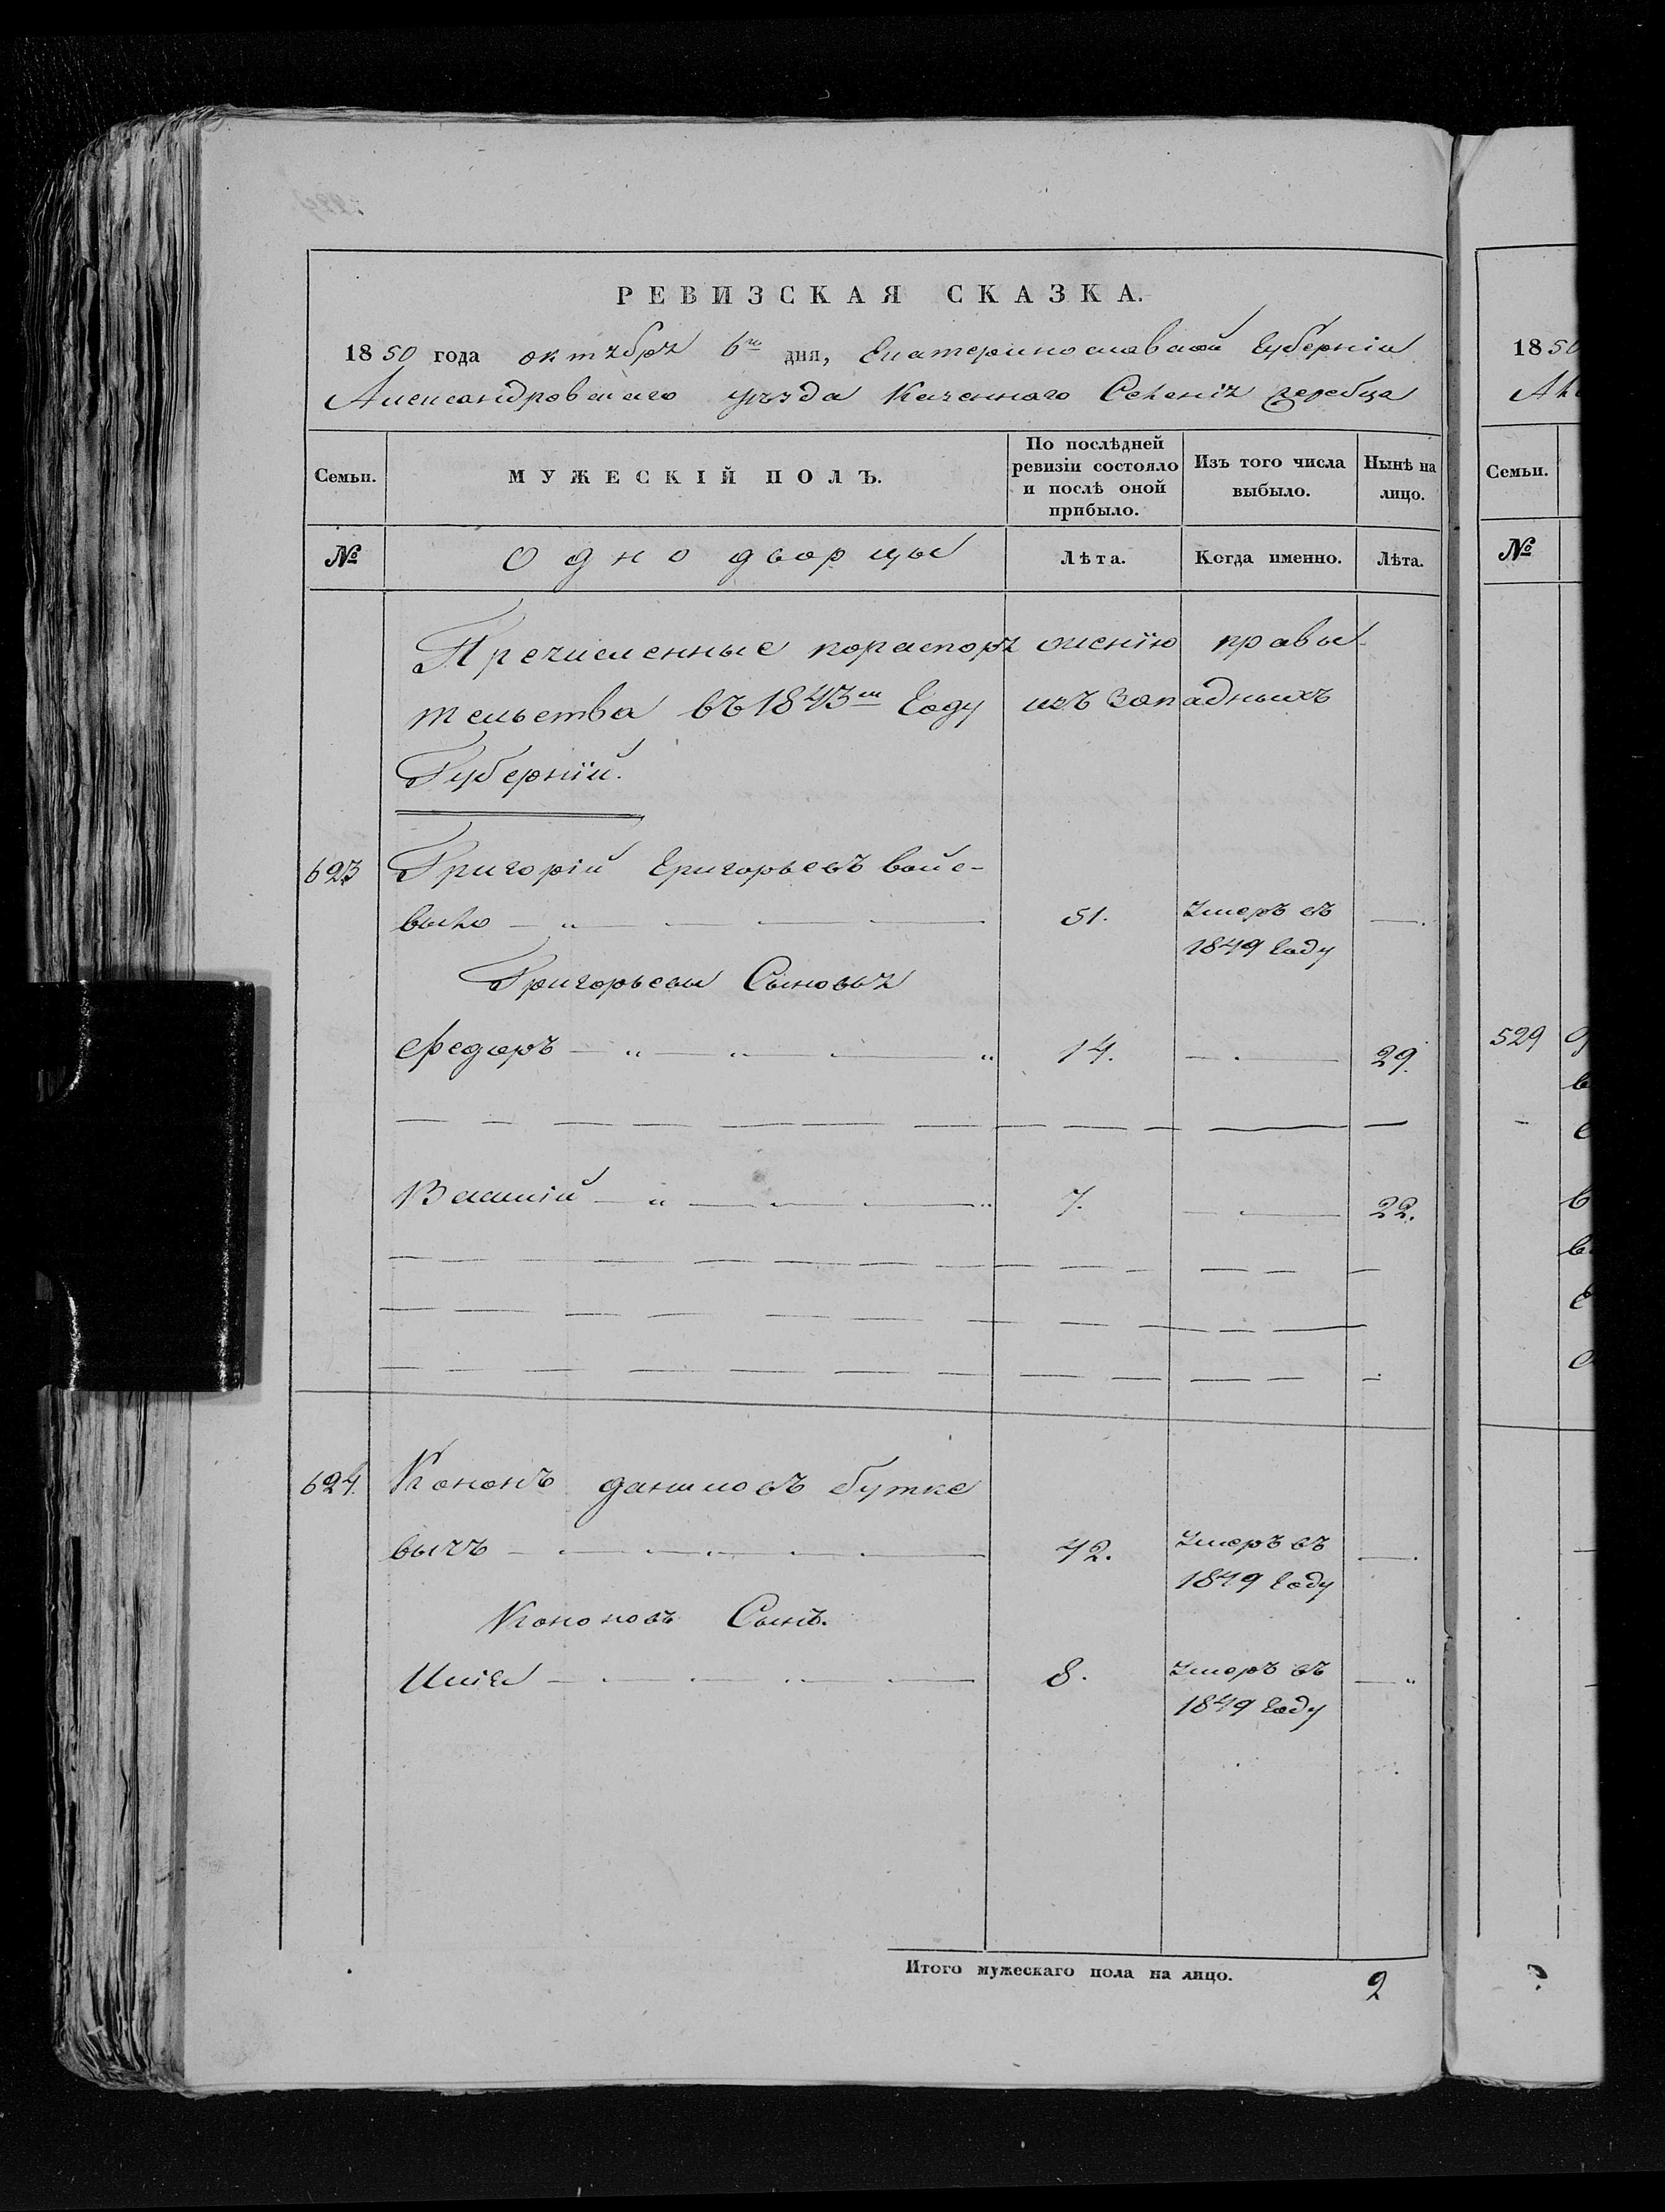 РЕВИЗСКАЯ СКАЗКА.
1850 года октября 6го дня, Екатеринославской губерніи
Александровскаго уѣзда Казеннаго Селенія Жеребца
Семьи.
МУЖЕСКІЙ ПОЛЪ.
По послѣдней ревизіи состояло и послѣ оной прибыло.
Изъ того числа выбыло.
Нынѣ на лицо.
№
Однодворцы
Лѣта.
Когда именно.
Лѣта.
Пречисленные пораспоряженію правы-
тельства въ 1843м Году изъ западныхъ
Губерній.
623 Григорій Григорьевъ
51. Умеръ въ
1849 Году
Григорьевы Сыновья
Федоръ 14. 29.
Василій 7. 22.
624. Кононъ даниловъ бутке
вичъ 42. Умеръ въ
1849 Году
Кононовъ Сынъ.
Илія 8. Умеръ въ
1849 Году
Итого мужескаго пола на лицо. 2
1850
Семьи.
№
529